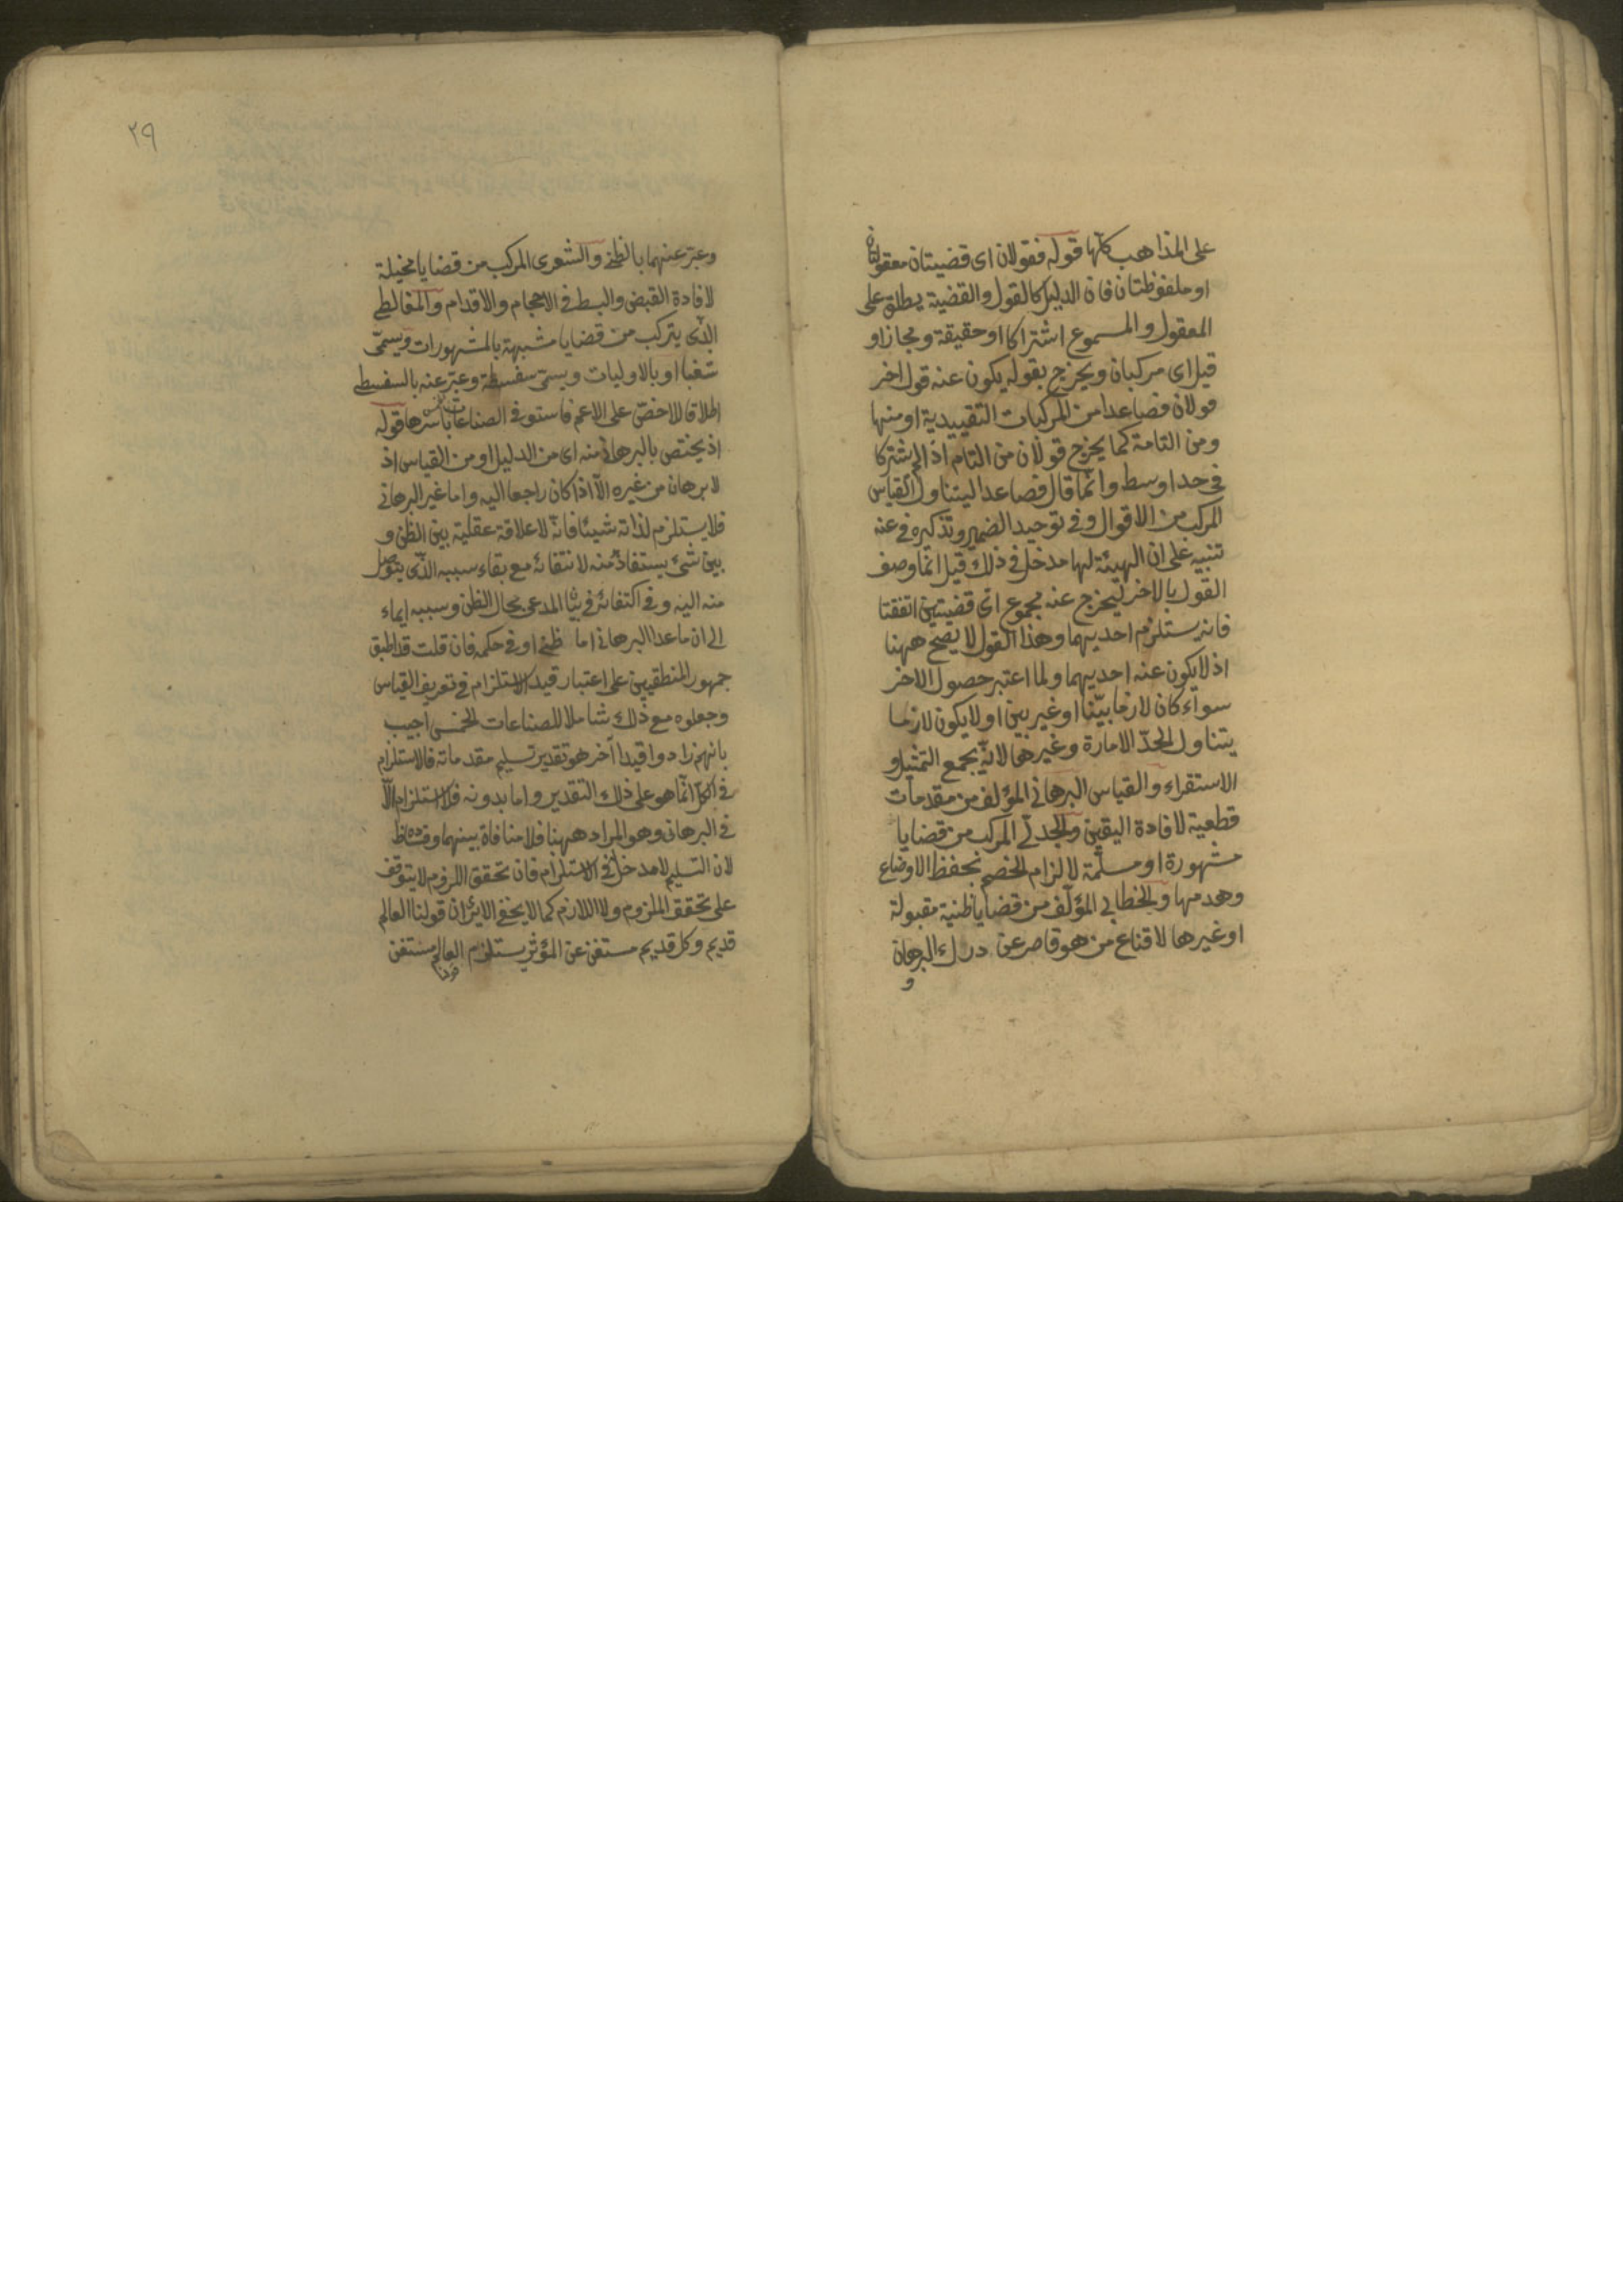 على المذاهب كلها قوله فقولان اى قضيتان معقولتان
او ملفوظتان فان الدليل كالقول والقضية يطلق على
المعقول والمسموع اشتراكا او حقيقة ومجازا و
قيل اى مركبان ويخرج بقوله يكون عنه قول اخر
قولان فصاعدا من المركبات التقييدية او منها
ومن التامة كما يخرج قولان من التام اذا لم يشتركا
فى حد اوسط وانما قال فصاعدا ليتناول القياس
المركب من الاقوال وفى توحيد الضمير وتذكيره فى عنه
تنبيه على ان الهيئة لها مدخل فى ذلك قيل انما وصف
القول بالاخر ليخرج عنه مجموع اى قضيتين اتفقتا
فانه يستلزم احديهما وهذا القول لا يصح ههنا
اذ لا يكون عنه احديهما ولما اعتبر حصول الاخر
سواء كان لازما بيّنا او غير بين او لا يكون لازما
يتناول الحدّ الامارة وغيرها لانّه يجمع التمثيل و
الاستقراء والقياس البرهانى المؤلف من مقدمات
قطعية لافادة اليقين والجدلى المركب من قضايا
مشهورة او مسلّمة لالزام الخصم بحفظ الاوضاع
وهدمها والخطابى المؤلّف من قضايا ظنية مقبولة
او غيرها لاقناع من هو قاصر عن درك البرهان
و
٢٩
وعبّر عنهما بالظنى والشعرى المركب من قضايا مخيلة
لافادة القبض والبسط فى الاحجام والاقدام والمغالطى
الذّى يتركب من قضايا مشبهة بالمشهورات ويسمّى
شغبا او بالاوليات ويسمى سفسطة وعبّر عنه بالسفسطى
اطلاقا للاخصّ على الاعم فاستوفى الصناعات باسرها قوله
اذ يختص بالبرهان منه اى من الدليل او من القياس اذ
لا برهان من غيره الّا اذا كان راجعا اليه واما غير البرهانى
فلا يستلزم لذاته شيئا فانّه لا علاقة عقلية بين الظن و
بين شئ يستفاد منه لانتفائه مع بقاء سببه الذّى يتوصل
منه اليه وفى اكتفائه فى المدعى بحال الظن وسببه ايماء
الى ان ماعدا البرهانى اما ظنى او فى حكمه فان قلت قد اطبق
جمهور المنطقيين على اعتبار قيد الاستلزام فى تعريف القياس
وجعلوه مع ذلك شاملا للصناعات الخمس اجيب
بانهم زادوا قيدا آخر هو تقدير تسليم مقدماته فالاستلزام
فى الكلّ انّما هو على ذلك التقدير واما بدونه فلا استلزام الّا
فى البرهانى وهو المراد ههنا فلا منافاة بينهما
لان التسليم لا مدخل له فى الاستلزام فان تحقق اللزوم لا يتوقف
على تحقق الملزوم ولا اللازم كما لا يخفى الا يرى ان قولنا العالم
قديم وكل قديم مستغن عن المؤثر يستلزم العالم مستغن